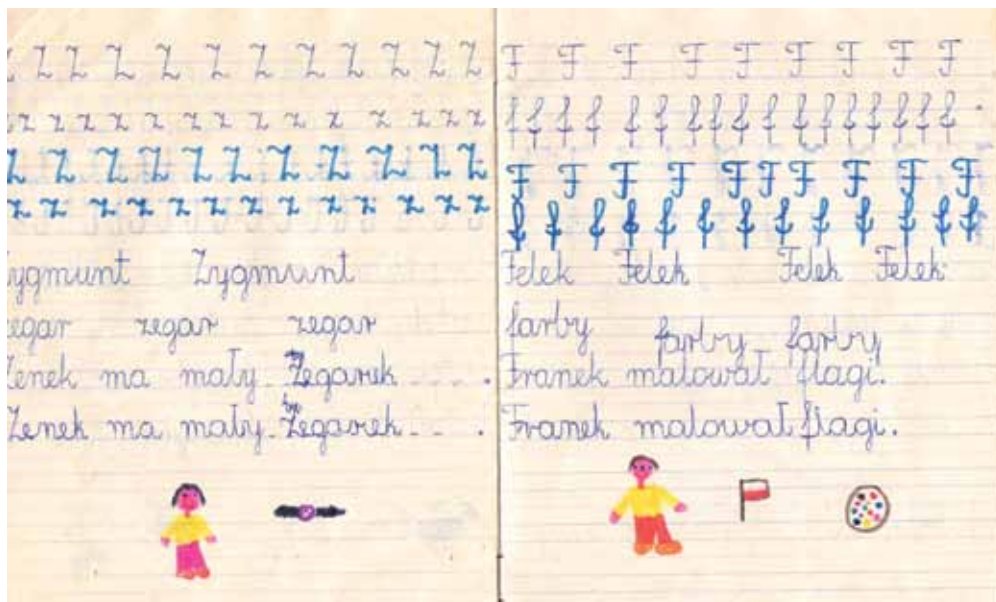 Z Z Z Z Z Z Z Z Z Z Z
z z z z z z z z z z z z z z z
Z Z Z Z Z Z Z Z Z Z Z
z z z z z z z z z z z z z
ygmunt Zygmunt
egar zegar zegar
Zenek ma mały Zegarek.
Zenek ma mały Zegarek.
F F F F F F F F F
f f f f f f f f f f f f f f f f f
F F F F F F F F F
f f f f f f f f f f f f f
Felek Felek Felek Felek
farby farby farby
Franek malował flagi.
Franek malował flagi.